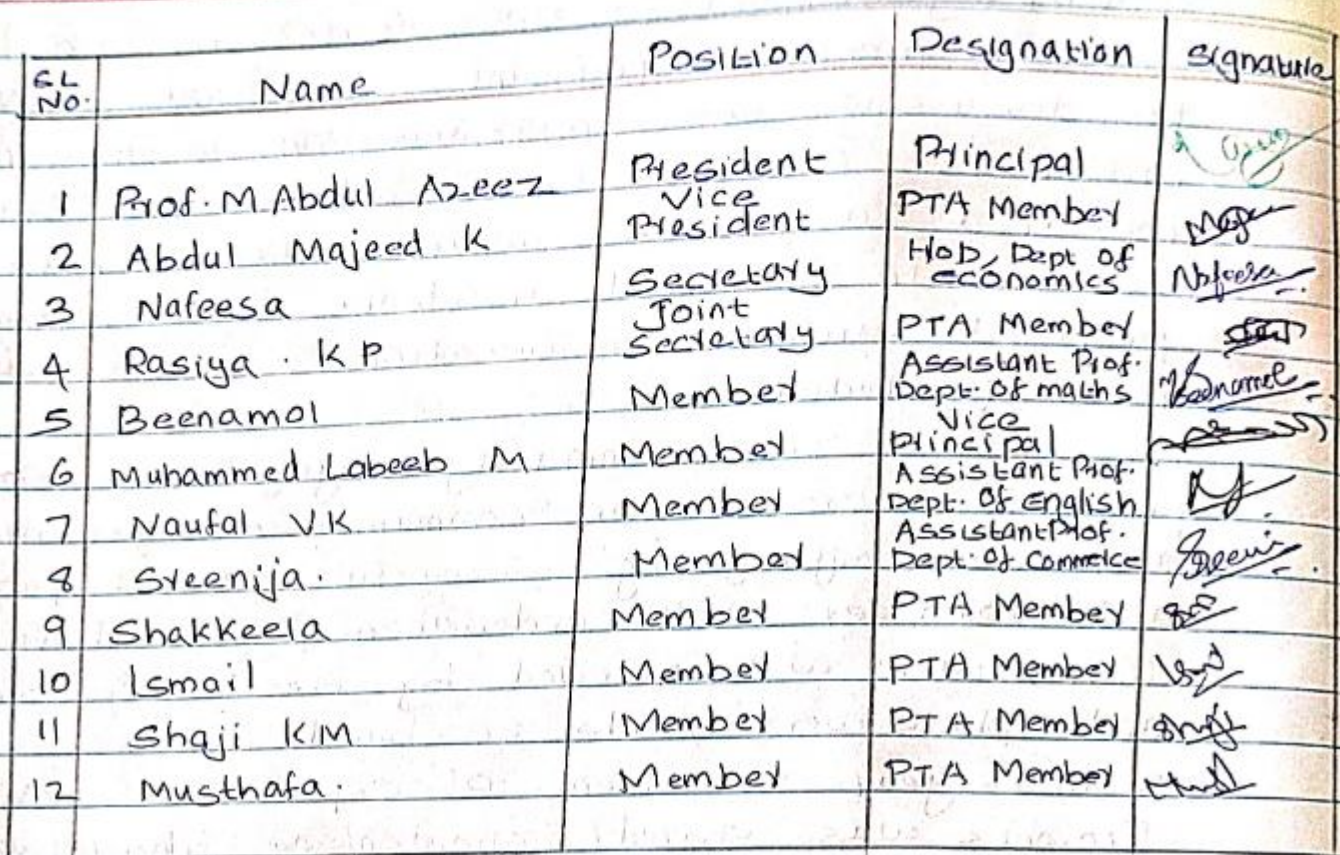 SL NO. Name Position Designation Signature
1 Prof. M Abdul Azeez President Principal
2 Abdul Majeed K Vice President PTA Member
3 Nafeesa Secretary HOD, Dept of economics Nafeesa
4 Rasiya . K P Joint Secretary PTA Member
5 Beenamol Member Assistant Prof. Dept. Of maths Beenamol
6 Muhammed Labeeb M Member Vice principal
7 Naufal V.K Member Assistant Prof. Dept. Of English
8 Sreenija. Member Assistant Prof. Dept. Of Commerce
9 Shakkeela Member PTA Member
10 Ismail Member PTA Member
11 Shaji K.M Member PTA Member
12 Musthafa. Member PTA Member